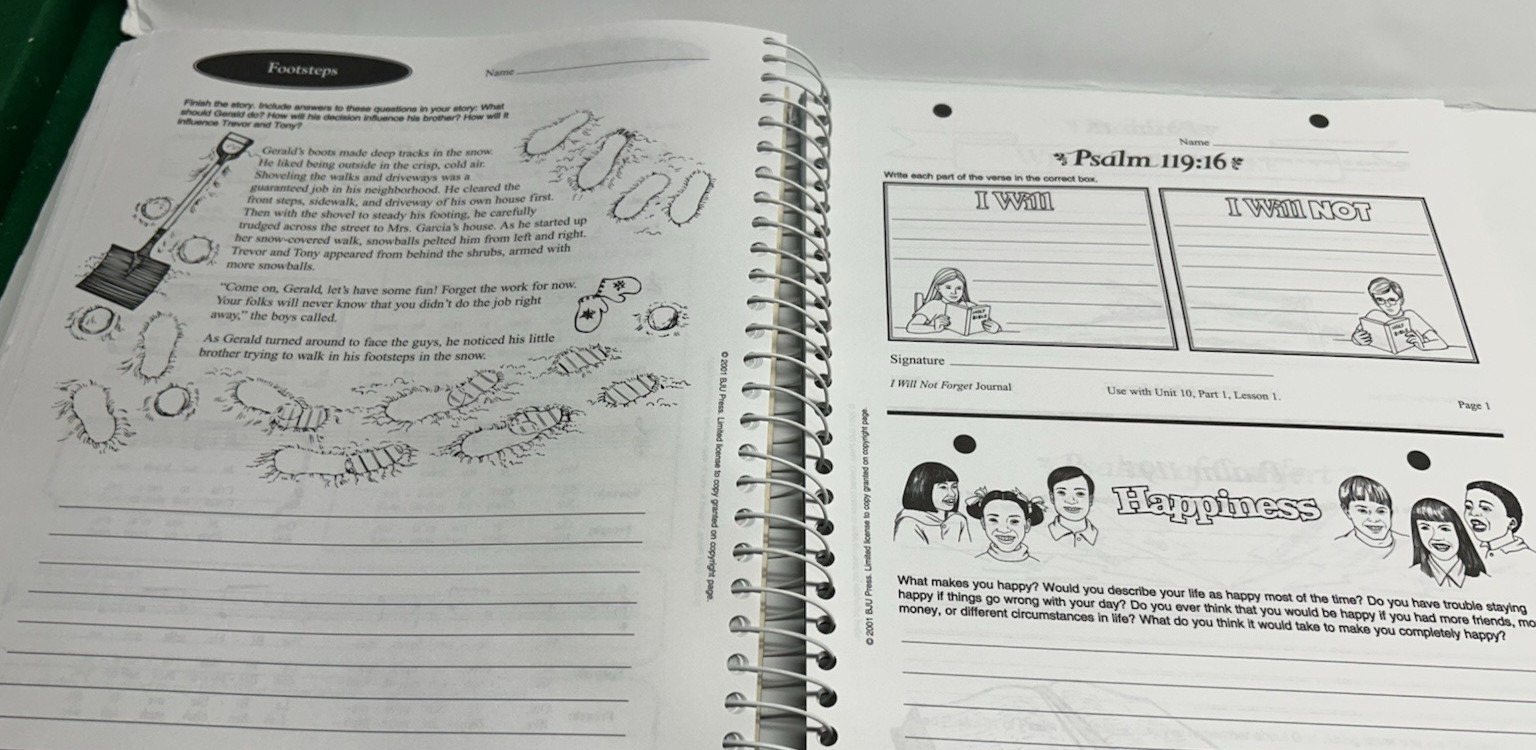 Footsteps
Name
Finish the story. Include answers to these questions in your story: What
should Gerald do? How will his decision influence his brother? How will it
influence Trevor and Tony?
Gerald's boots made deep tracks in the snow.
He liked being outside in the crisp, cold air.
Shoveling the walks and driveways was a
guaranteed job in his neighborhood. He cleared the
front steps, sidewalk, and driveway of his own house first.
Then with the shovel to steady his footing, he carefully
trudged across the street to Mrs. Garcia's house. As he started up
her snow-covered walk, snowballs pelted him from left and right.
Trevor and Tony appeared from behind the shrubs, armed with
more snowballs.
"Come on, Gerald, let's have some fun! Forget the work for now.
Your folks will never know that you didn't do the job right
away," the boys called.
As Gerald turned around to face the guys, he noticed his little
brother trying to walk in his footsteps in the snow.
© 2001 BJU Press. Limited license to copy granted on copyright page.
Name
Psalm 119:16
Write each part of the verse in the correct box.
I Will
I Will NOT
HOLY
BIBLE
HOLY
BIBLE
Signature
I Will Not Forget Journal
Use with Unit 10, Part 1, Lesson 1.
Page 1
© 2001 BJU Press. Limited license to copy granted on copyright page.
Happiness
What makes you happy? Would you describe your life as happy most of the time? Do you have trouble staying
happy if things go wrong with your day? Do you ever think that you would be happy if you had more friends, mo
money, or different circumstances in life? What do you think it would take to make you completely happy?